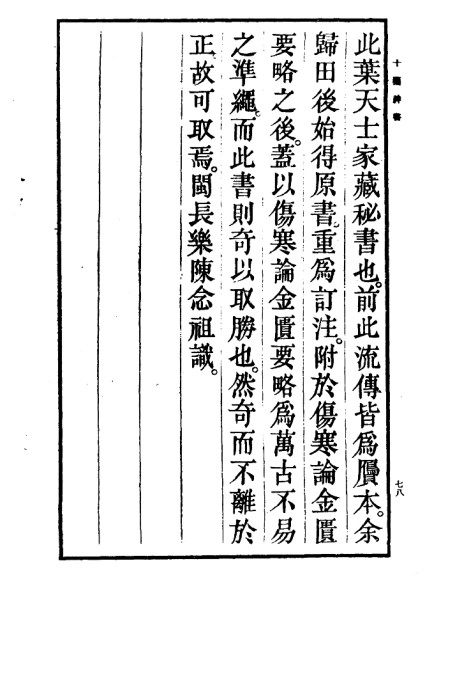 此葉天士家藏秘書也。前此流傳皆爲贗本。余
歸田後始得原書。重爲訂注。附於傷寒論金匱
要略之後。蓋以傷寒論金匱要略爲萬古不易
之準繩。而此書則奇以取勝也。然奇而不離於
正。故可取焉。閩長樂陳念祖識。
七八